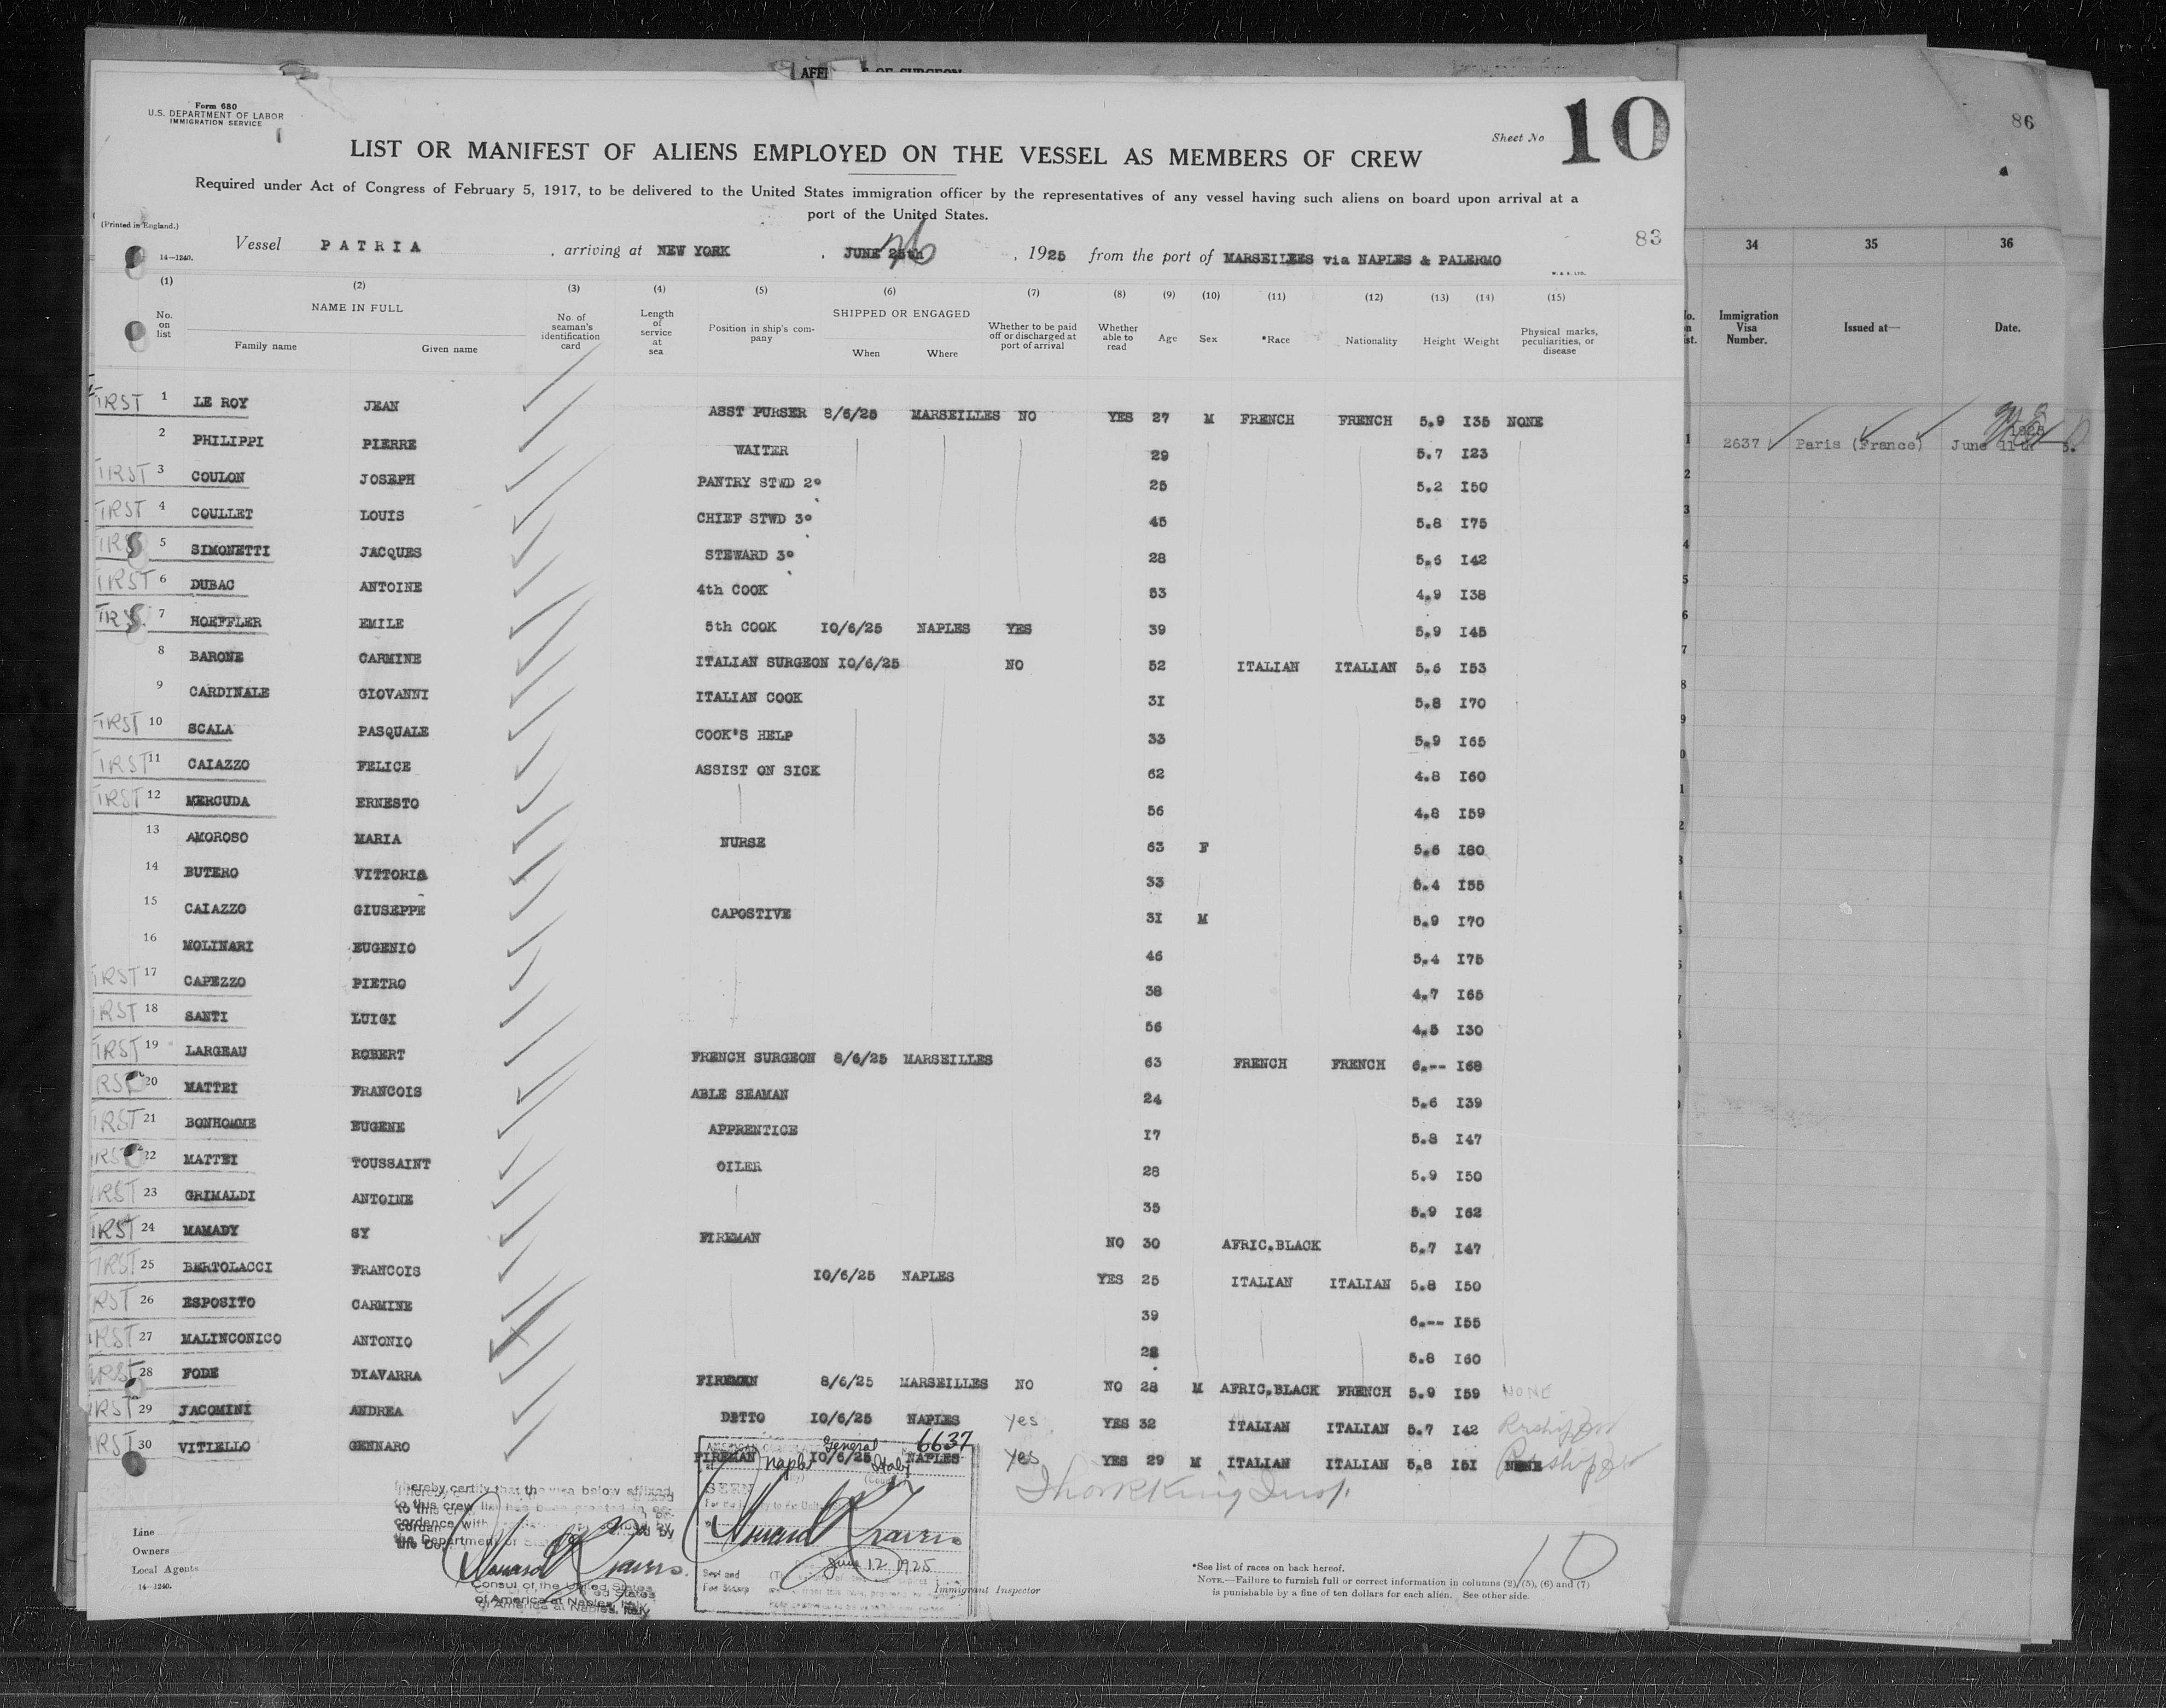 AFFI OF SURGEON
Form 680
U.S. DEPARTMENT OF LABOR
IMMIGRATION SERVICE
Sheet No 10
LIST OR MANIFEST OF ALIENS EMPLOYED ON THE VESSEL AS MEMBERS OF CREW
Required under Act of Congress of February 5, 1917, to be delivered to the United States immigration officer by the representatives of any vessel having such aliens on board upon arrival at a
port of the United States.
(Printed in England.)
14—1240.
Vessel PATRIA , arriving at NEW YORK , JUNE 25th 26 , 1925 from the port of MARSEILLES via NAPLES & PALERMO
83
W. & S. LTD.
(1) (2) (3) (4) (5) (6) (7) (8) (9) (10) (11) (12) (13) (14) (15)
No. on list NAME IN FULL Family name Given name No. of seaman's identification card Length of service at sea Position in ship's company SHIPPED OR ENGAGED When Where Whether to be paid off or discharged at port of arrival Whether able to read Age Sex *Race Nationality Height Weight Physical marks, peculiarities, or disease
FIRST 1 LE ROY JEAN ASST PURSER 8/6/25 MARSEILLES NO YES 27 M FRENCH FRENCH 5.9 I35 NONE
2 PHILIPPI PIERRE WAITER 29 5.7 I23
FIRST 3 COULON JOSEPH PANTRY STWD 2° 25 5.2 I50
FIRST 4 COULLET LOUIS CHIEF STWD 3° 45 5.8 I75
FIRST 5 SIMONETTI JACQUES STEWARD 3° 28 5.6 I42
FIRST 6 DUBAC ANTOINE 4th COOK 53 4.9 I38
FIRST 7 HOEFFLER EMILE 5th COOK 10/6/25 NAPLES YES 39 5.9 I45
8 BARONE CARMINE ITALIAN SURGEON 10/6/25 NO 52 ITALIAN ITALIAN 5.6 I53
9 CARDINALE GIOVANNI ITALIAN COOK 3I 5.8 I70
FIRST 10 SCALA PASQUALE COOK'S HELP 33 5.9 I65
FIRST 11 CAIAZZO FELICE ASSIST ON SICK 62 4.8 I60
FIRST 12 MERCUDA ERNESTO 56 4.8 I59
13 AMOROSO MARIA NURSE 63 F 5.6 I80
14 BUTERO VITTORIA 33 5.4 I55
15 CAIAZZO GIUSEPPE CAPOSTIVE 3I M 5.9 I70
16 MOLINARI EUGENIO 46 5.4 I75
FIRST 17 CAPEZZO PIETRO 38 4.7 I65
FIRST 18 SANTI LUIGI 56 4.5 I30
FIRST 19 LARGEAU ROBERT FRENCH SURGEON 8/6/25 MARSEILLES 63 FRENCH FRENCH 6.-- I68
FIRST 20 MATTEI FRANCOIS ABLE SEAMAN 24 5.6 I39
FIRST 21 BONHOMME EUGENE APPRENTICE I7 5.8 I47
FIRST 22 MATTEI TOUSSAINT OILER 28 5.9 I50
FIRST 23 GRIMALDI ANTOINE 35 5.9 I62
FIRST 24 MAMADY SY FIREMAN NO 30 AFRIC.BLACK 5.7 I47
FIRST 25 BERTOLACCI FRANCOIS 10/6/25 NAPLES YES 25 ITALIAN ITALIAN 5.8 I50
FIRST 26 ESPOSITO CARMINE 39 6.-- I55
FIRST 27 MALINCONICO ANTONIO 28 5.8 I60
FIRST 28 FODE DIAVARRA FIREMEN 8/6/25 MARSEILLES NO NO 28 M AFRIC.BLACK FRENCH 5.9 I59 NONE
FIRST 29 JACOMINI ANDREA DITTO 10/6/25 NAPLES yes YES 32 ITALIAN ITALIAN 5.7 I42
FIRST 30 VITIELLO GENNARO FIREMAN 10/6/25 NAPLES yes YES 29 M ITALIAN ITALIAN 5.8 I5I NONE
General 6637
Naples Italy
SEEN
June 12 1925
I hereby certify that the visa below affixed
to this crew list has been granted in ac-
cordance with by
the Department of
Consul of the United States
of America at Naples, Italy
Line
Owners
Local Agents
14—1240.
Immigrant Inspector
*See list of races on back hereof.
NOTE.—Failure to furnish full or correct information in columns (2), (5), (6) and (7)
is punishable by a fine of ten dollars for each alien. See other side.
10
86
34 35 36
Immigration Visa Number. Issued at— Date.
1 2637 Paris (France) June 11th